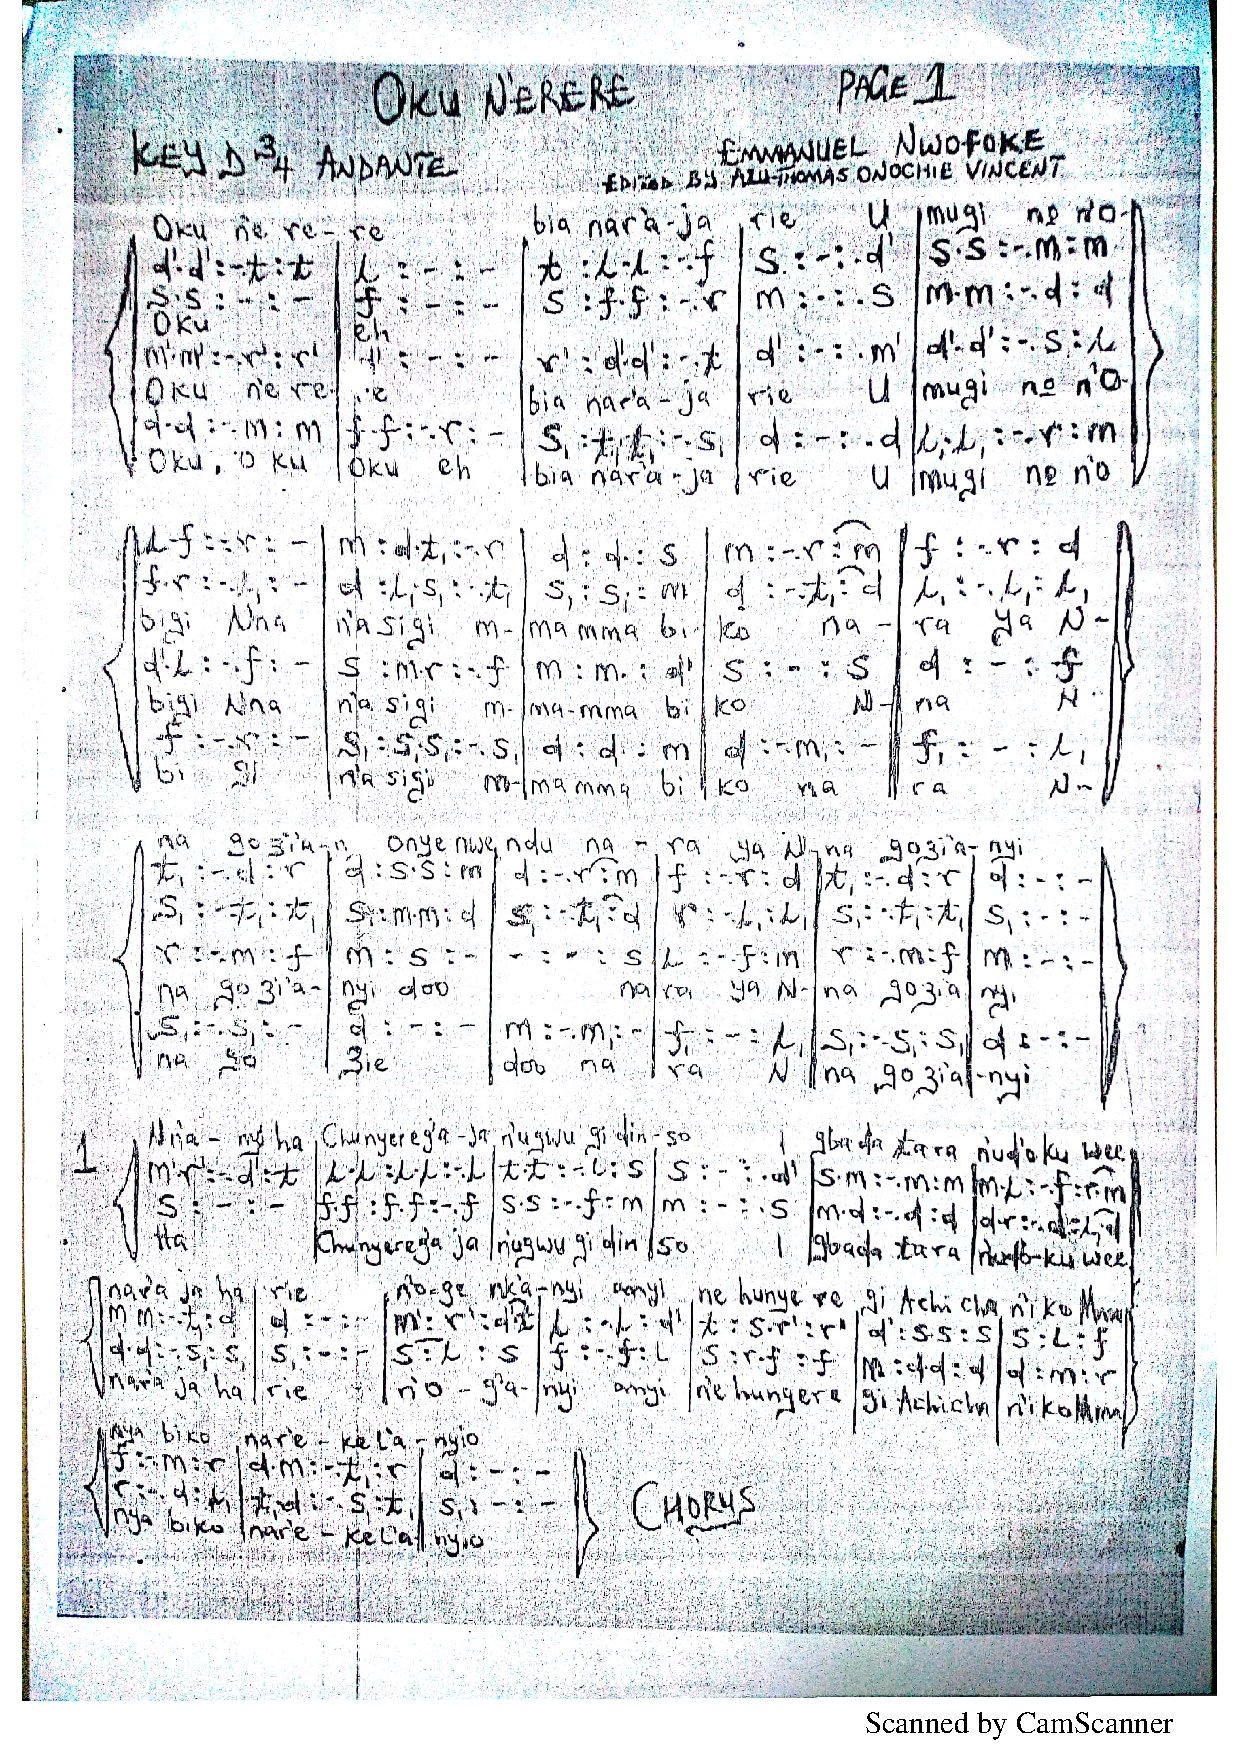 OKU N'ERERE PAGE 1
KEY D 3/4 ANDANTE EMMANUEL NWOFOKE
EDITED BY AZU-THOMAS ONOCHIE VINCENT
Oku n'e re-re bia nar'a-ja rie U mugi no n'O-
d'.d':-.t:t | l:-:- | t:l.l:-.f | s:-:.d' | s.s:-.m:m
s.s:-:- | f:-:- | s:f.f:-.r | m:-:.s | m.m:-.d:d
Oku eh
m'.m':-.r':r' | :-:- | r':d'.d':-.t | d':-:.m' | d'.d':-.s:l
Oku n'e re- e bia nar'a-ja rie U mugi no n'O-
d.d:-.m:m | f.f:-.r:- | s₁:t₁.t₁:-.s₁ | d:-:.d | l₁.l₁:-.r:m
Oku, O ku Oku eh bia nar'a-ja rie U mugi no n'O
l.f:-.r:- | m:d.t₁:-.r | d:d.:s | m:-.r:m | f:-.r:d
f.r:-.l₁:- | d:l₁.s₁:-.t₁ | s₁:s₁.:m | d:-.t₁:d | l₁:-.l₁:l₁
bigi Nna n'a sigi m-mamma bi-ko na-ra ya N-
d'.l:-.f:- | s:m.r:-.f | m:m.:d' | s:-:s | d:-:f
bigi Nna n'a sigi m-ma-mma bi ko N-na N
f:-.r:- | s₁:s₁.s₁:-.s₁ | d:d.:m | d:-.m₁:- | f₁:-:l₁
bi gi n'a sigi m-mamma bi ko na ra N-
na gozi'a-n onyenwe ndu na-ra ya N-na gozi'a-nyi
t₁:-.d:r | d:s.s:m | d:-.r:m | f:-.r:d | t₁:-.d:r | d:-:-
s₁:-.t₁:t₁ | s₁:m.m:d | s₁:-.t₁:d | r:-.l₁:l₁ | s₁:-.t₁:t₁ | s₁:-:-
r:-.m:f | m:s:- | -:-:s | l:-.f:m | r:-.m:f | m:-:-
na gozi'a-nyi doo na ra ya N-na gozia nyi
s₁:-.s₁:- | d:-:- | m:-.m₁:- | f₁:-:l₁ | s₁:-.s₁:s₁ | d:-:-
na go zie doo na ra N na gozia-nyi
1 Nn'a- ha Chunyereg'a-ja n'ugwu gi din-so I gbada tara n'ud'oku wee
m'.r':-.d':t | l.l:l.l:-.l | t.t:-.l:s | s:-:.d' | s.m:-.m:m | m.l:-.f:r.m
s:-:- | f.f:f.f:-.f | s.s:-.f:m | m:-:.s | m.d:-.d:d | d.r:-.d:l₁.d
Ha Chunyereg'a ja n'ugwu gi din so I gbada tara wee
nar'a ja ha rie n'o-ge nk'a-nyi anyi ne hunye re gi Achicha n'i ko
m.m:-.t₁:d | d:-:- | m':r':d'.t | l:-.l:d' | t:s.r':r' | d':s.s:s | s:l:f
d.d:-.s₁:s₁ | s₁:-:- | s:l:s | f:-.f:l | s:r.f:f | m:d.d:d | d:m:r
nar'a ja ha rie n'o-g'a-nyi anyi n'e hungere gi Achicha n'i ko
nya biko nar'e-kel'a-nyio
f:-.m:r | d.m:-.t₁:r | d:-:-
r:-.d:l₁ | t₁.d:-.s₁:t₁ | s₁:-:-
nya biko nar'e-kel'a nyio
CHORUS
Scanned by CamScanner